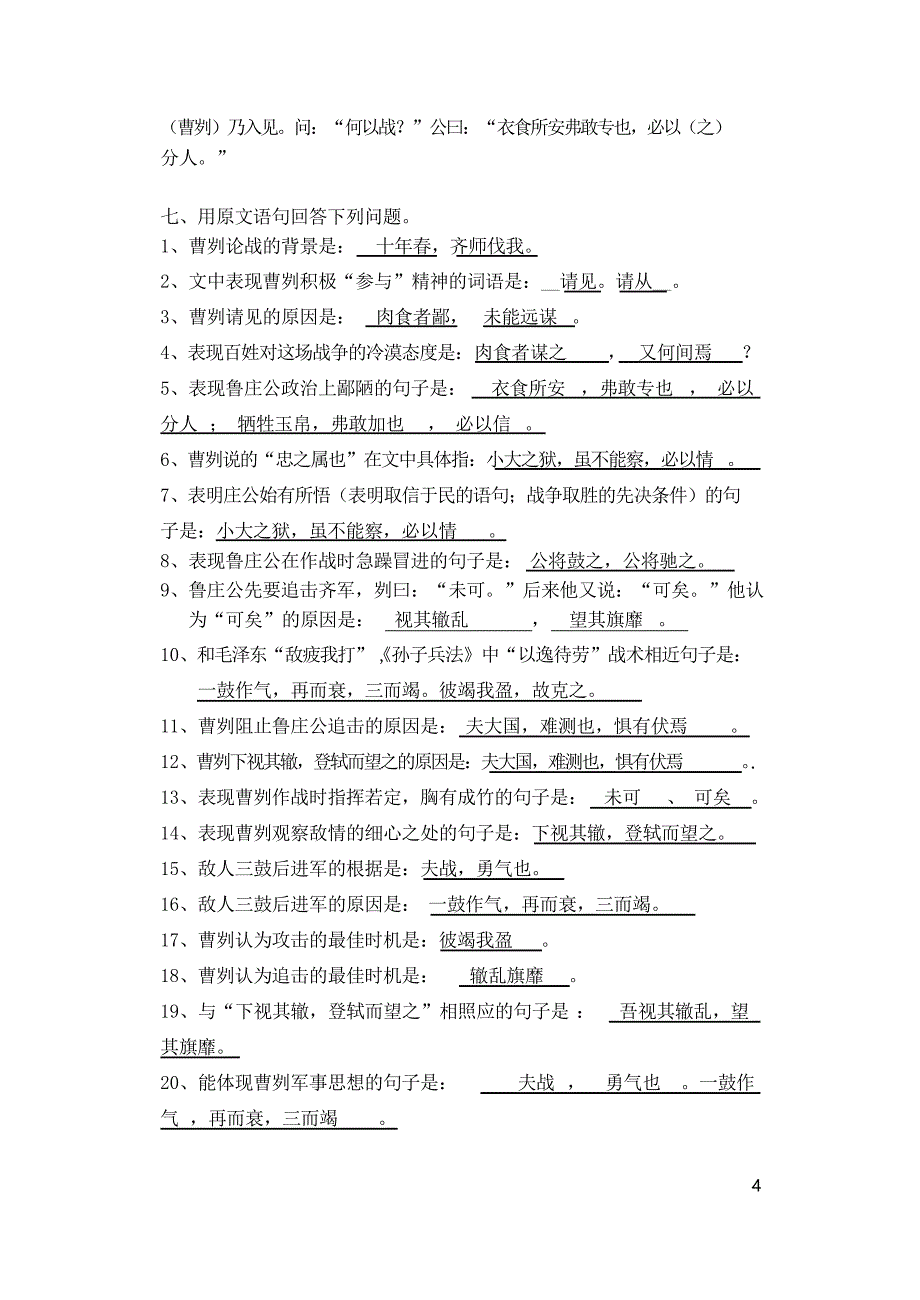 （曹刿）乃入见。问：“何以战？”公曰：“衣食所安弗敢专也，必以（之）
分人。”
七、用原文语句回答下列问题。
1、曹刿论战的背景是： 十年春，齐师伐我。
2、文中表现曹刿积极“参与”精神的词语是：__请见。请从__。
3、曹刿请见的原因是： 肉食者鄙， 未能远谋 。
4、表现百姓对这场战争的冷漠态度是：肉食者谋之 ， 又何间焉 ？
5、表现鲁庄公政治上鄙陋的句子是： 衣食所安 ，弗敢专也 ， 必以
分人 ； 牺牲玉帛，弗敢加也 ， 必以信 。
6、曹刿说的“忠之属也”在文中具体指：小大之狱，虽不能察，必以情 。
7、表明庄公始有所悟（表明取信于民的语句；战争取胜的先决条件）的句
子是：小大之狱，虽不能察，必以情 。
8、表现鲁庄公在作战时急躁冒进的句子是： 公将鼓之，公将驰之。
9、鲁庄公先要追击齐军，刿曰：“未可。”后来他又说：“可矣。”他认
为“可矣”的原因是： 视其辙乱 ， 望其旗靡 。
10、和毛泽东“敌疲我打”，《孙子兵法》中“以逸待劳”战术相近句子是：
一鼓作气，再而衰，三而竭。彼竭我盈，故克之。
11、曹刿阻止鲁庄公追击的原因是： 夫大国，难测也，惧有伏焉 。
12、曹刿下视其辙，登轼而望之的原因是：夫大国，难测也，惧有伏焉 。.
13、表现曹刿作战时指挥若定，胸有成竹的句子是： 未可 、 可矣 。
14、表现曹刿观察敌情的细心之处的句子是：下视其辙，登轼而望之。
15、敌人三鼓后进军的根据是：夫战，勇气也。
16、敌人三鼓后进军的原因是： 一鼓作气，再而衰，三而竭。
17、曹刿认为攻击的最佳时机是：彼竭我盈 。
18、曹刿认为追击的最佳时机是： 辙乱旗靡 。
19、与“下视其辙，登轼而望之”相照应的句子是 ： 吾视其辙乱，望
其旗靡。
20、能体现曹刿军事思想的句子是： 夫战 ， 勇气也 。一鼓作
气 ，再而衰，三而竭 。
4